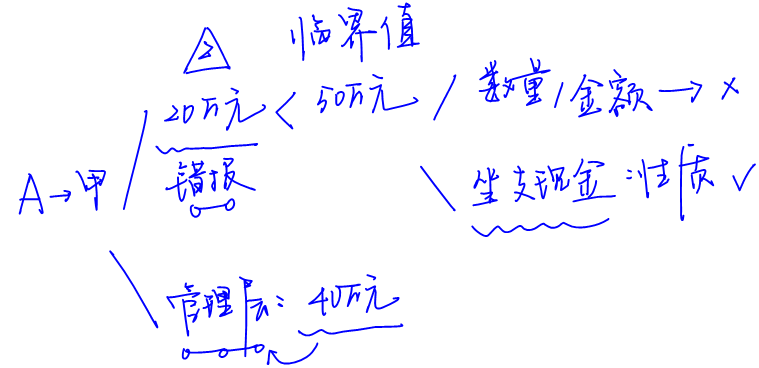 ② 临界值
20万元 < 50万元 / 数量/金额 → ×
A→甲 错报 坐支现金:性质 ✓
管理层:40万元